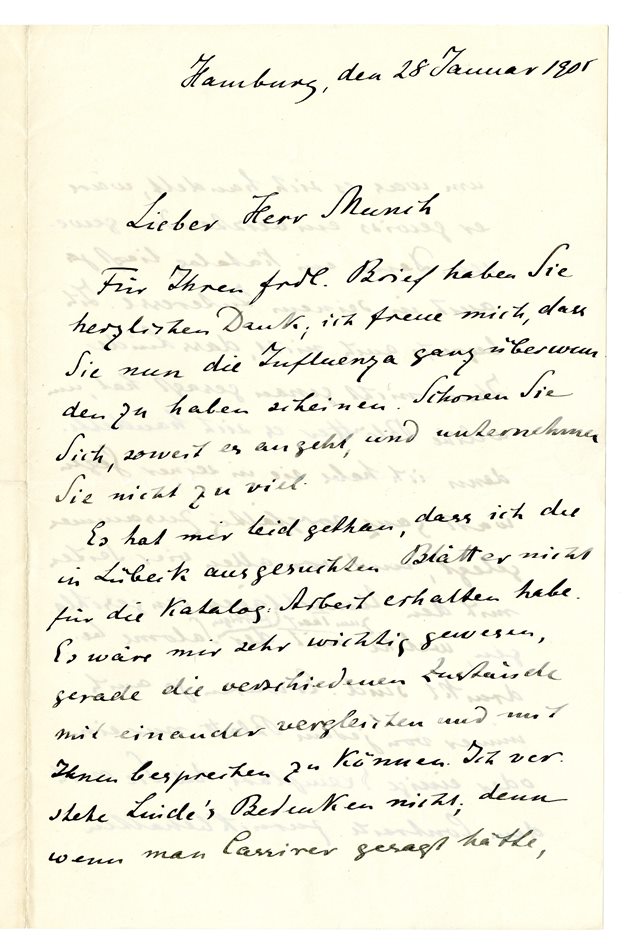 Hamburg, den 28 Januar 1905
Lieber Herr Munch
Für Ihren frdl. Brief haben Sie
herzlichen Dank; ich freue mich, dass
Sie nun die Influenza ganz überwun-
den zu haben scheinen. Schonen Sie
Sich, soweit es angeht, und unternehmen
Sie nicht zu viel.
Es hat mir leid gethan, dass ich die
in Lübeck ausgesuchten Blätter nicht
für die Katalog-Arbeit erhalten habe.
Es wäre mir sehr wichtig gewesen,
gerade die verschiedenen Zustände
mit einander vergleichen und mit
Ihnen besprechen zu können. Ich ver-
stehe Linde's Bedenken nicht; denn
wenn man Cassirer gesagt hätte,